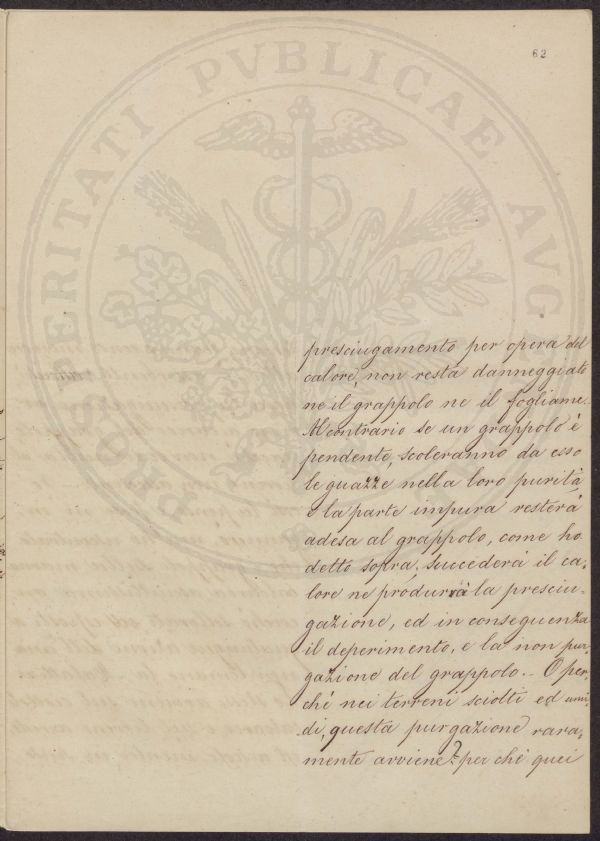 62
PROSPERITATI PVBLICAE AVG
presciugamento per opera del
calore, non resta danneggiato
ne il grappolo ne il fogliame.
Al contrario se un grappolo è
pendente, scoleranno da esso
le guazze nella loro purità,
e la parte impura resterà
adesa al grappolo, come ho
detto sopra, succederà il ca-
lore ne produrrà la presciu-
gazione, ed in conseguenza
il deperimento, e la non pur-
gazione del grappolo.. O per-
chè nei terreni sciolti ed umi-
di, questa purgazione rara-
mente avviene? per chè quei